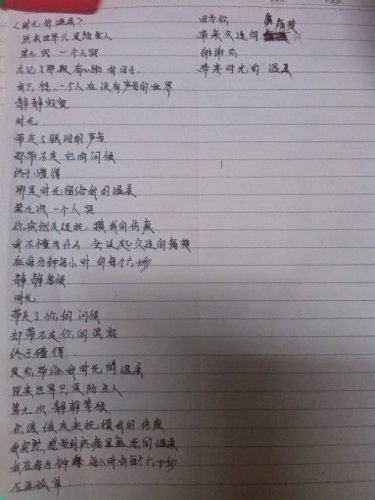 《时光的温柔》
原来世界只是陌生人
第九次 一个人哭
忘记了那段有的日子
我只想,一个人在没有声音的世界
静静寂寞
时光
带走了眼泪的声音
却带不走它的问候
终于懂得
那是时光留给我的温柔
第九次 一个人哭
你突然过来抚摸我的伤痕
我不懂为什么会泛起久违的
在每分钟每小时的每个六十秒
静静等候
时光
带走了你的问候
却带不走你的笑容
终于懂得
是你带给我时光的温柔
原来世界只是陌生人
第九次 静静等候
你缓缓走来抚摸我的伤痕
我突然感觉到疼痛里熟悉的温柔
我在每分钟每小时的每个六十秒
不再孤单
因为你
带来久违的
谢谢你
带来时光的温柔